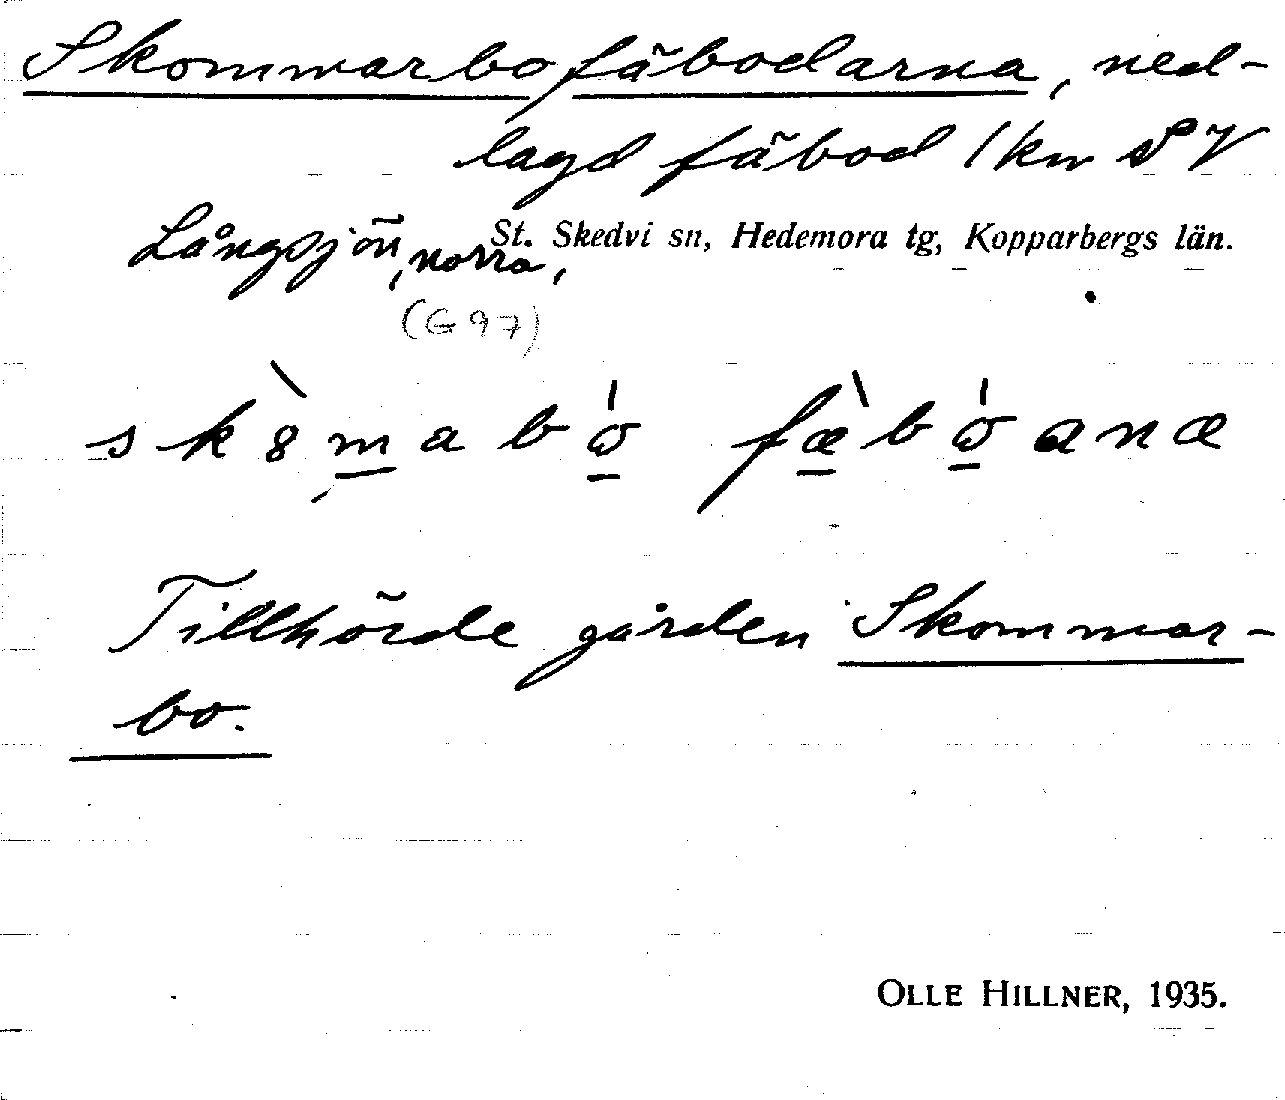 Skommarbofäbodarna, ned-
lagd fäbod 1 km SV
Långsjön, norra,
St. Skedvi sn, Hedemora tg, Kopparbergs län.
(G 97)
Tillhörde gården Skommar-
bo.
OLLE HILLNER, 1935.